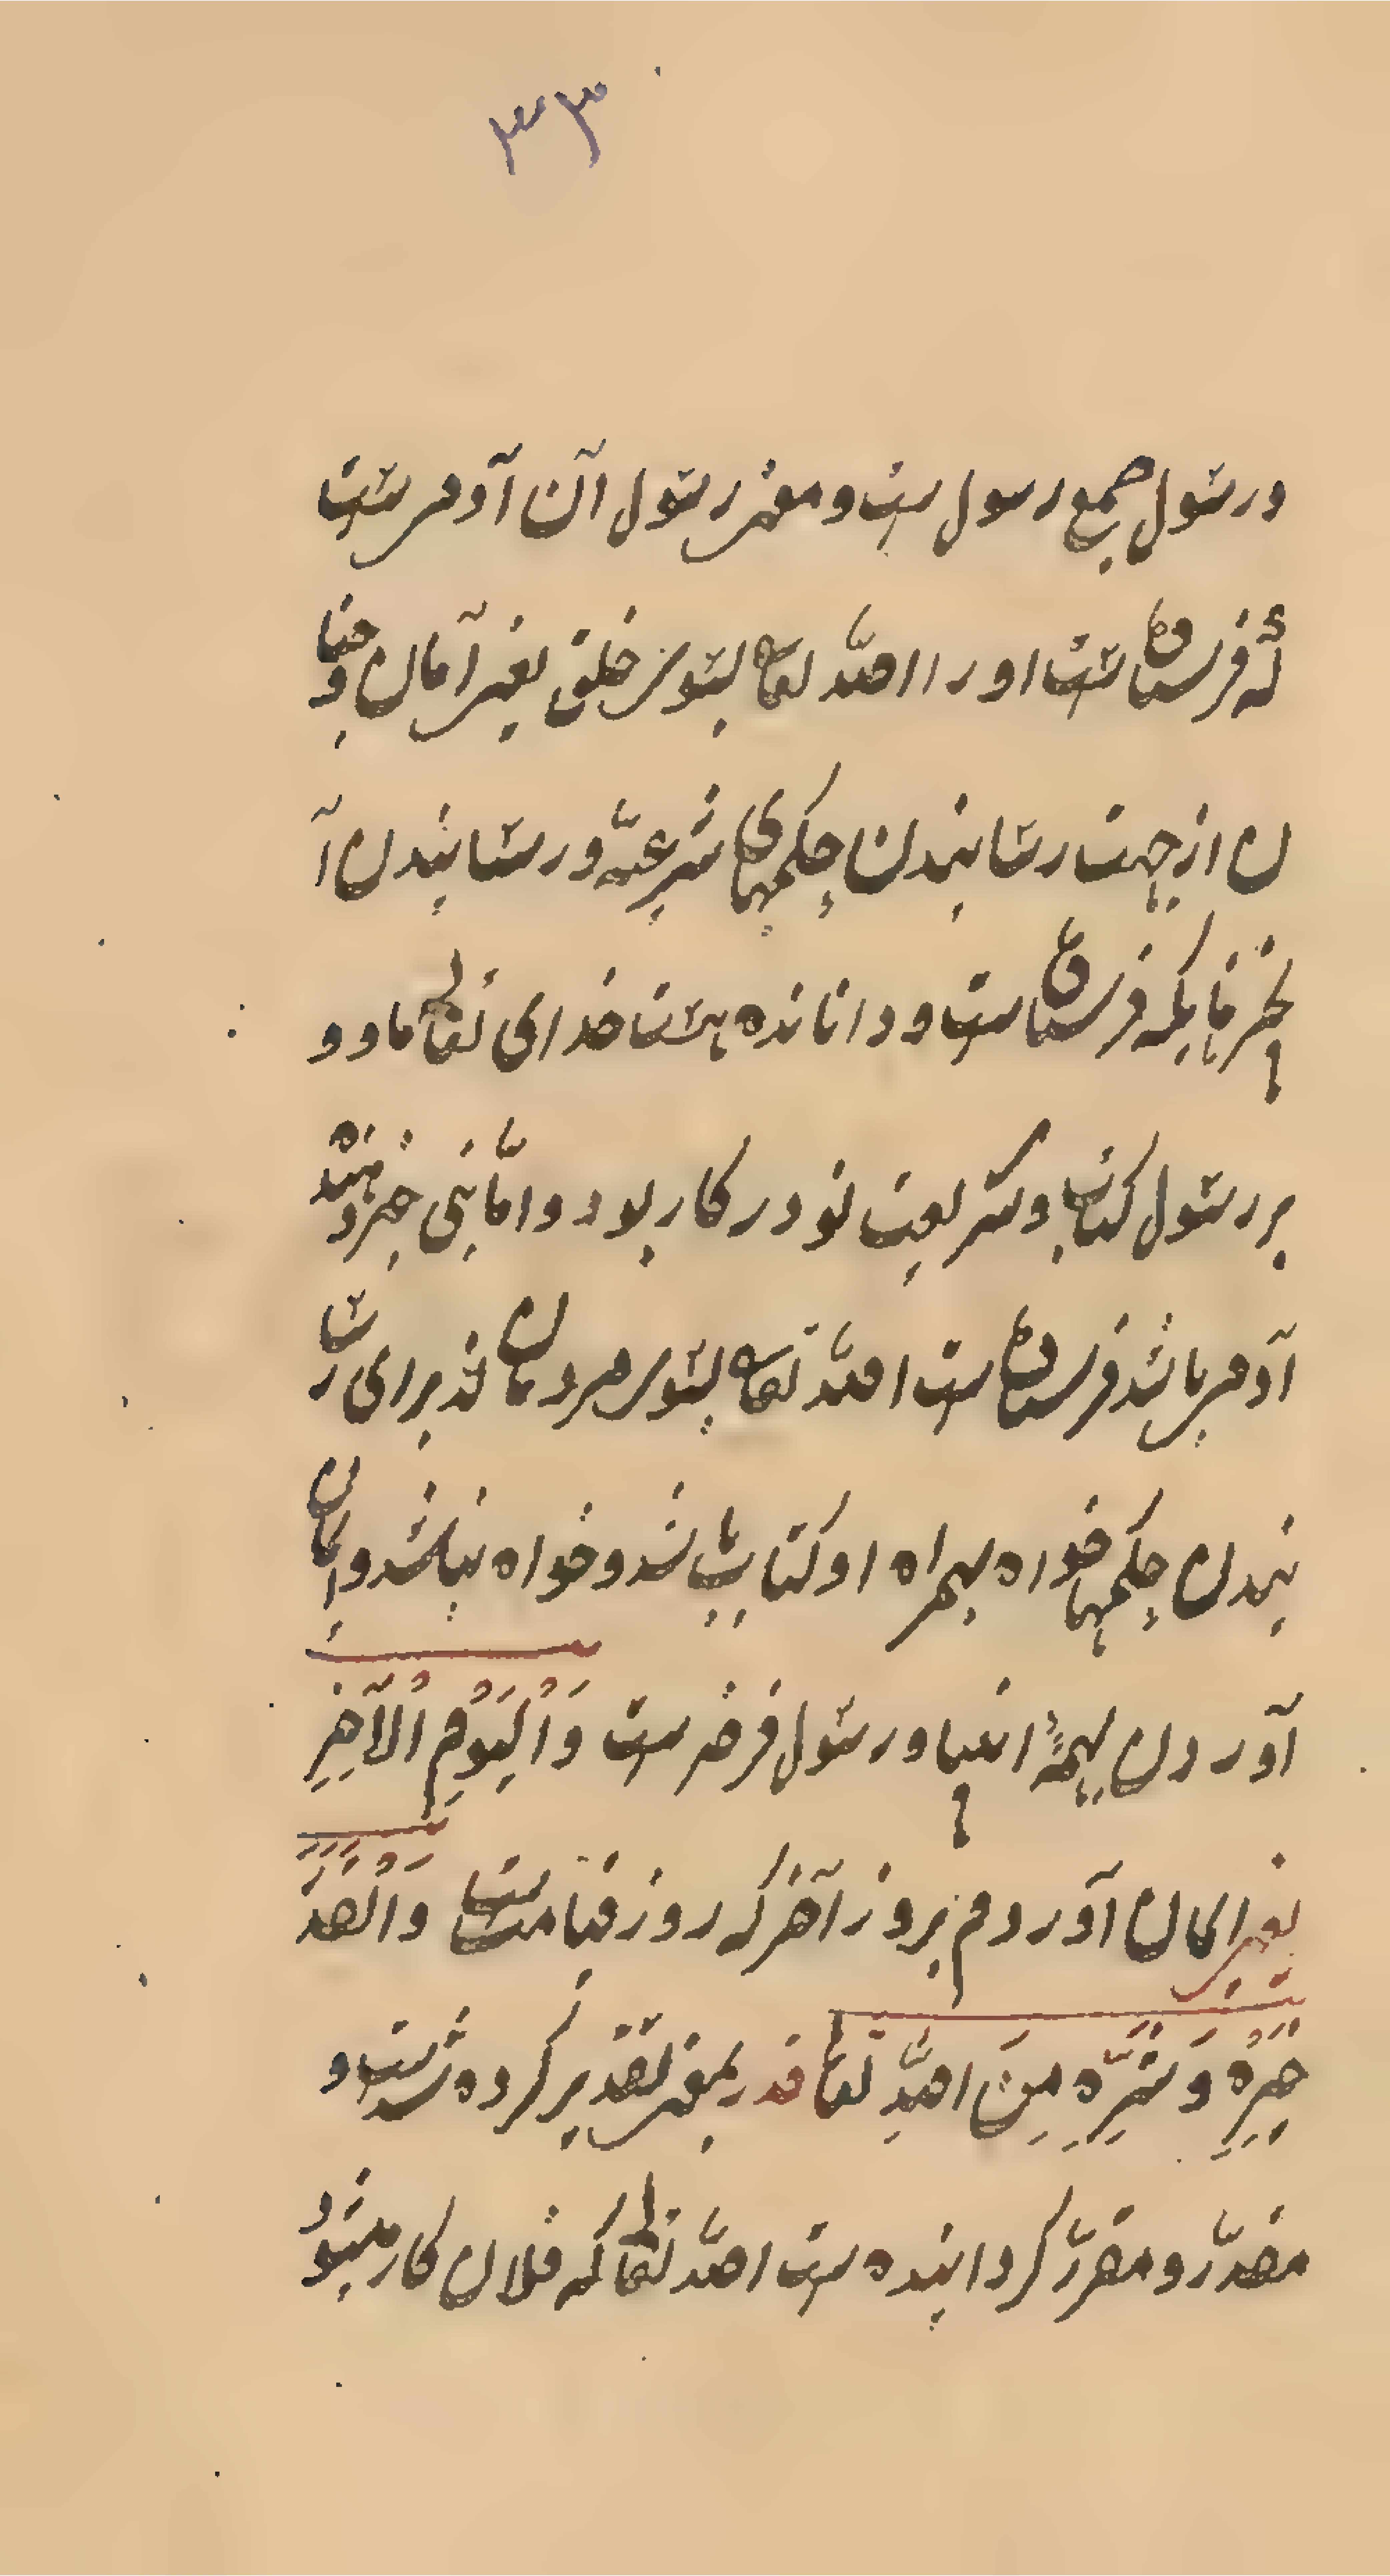 ۳۳
ورسول جمع رسول ست ومعنی رسول آن آدمی ست
که فرستاده است او را الله تعالی بسوی خلق یعنی آدمان و جنیا
ن از جهت رسانیدن حکمهای شرعیه و رسانیدن آ
چیزهایکه فرستاده است و داناننده است خدای تعالی ما و و
بر رسول کتاب و شریعت نو در کار بود و اما نبی خردمند
آدمی باشد فرستاده ست الله تعالی بسوی مردمان نه برای رسا
نیدن حکمها خواه بهمراه او کتاب باشد و خواه نباشد و ایمان
آوردن بهمهٔ انبیا و رسول فرض ست وَالْیَوْمِ الْآخِرِ
یعنی ایمان آوردم بروز آخر که روز قیامت است وَالْقَدَرِ
خَیْرِهِ وَشَرِّهِ مِنَ اللهِ تَعَالٰی قدر بمعنی تقدیر کرده شده ست و
مقدّر و مقرّر گردانیده ست الله تعالی که فلان کار میشود